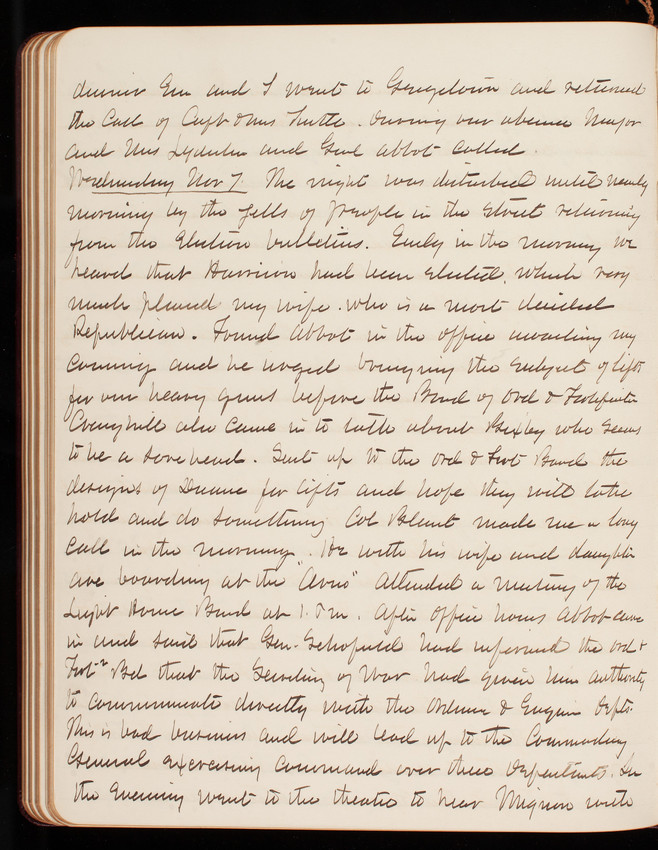 dinner Em and I went to Georgetown and returned
the call of Capt & Mrs Tuttle. During our absence Major
and Mrs Lydecker and Genl Abbot called.
Wednesday Nov 7. The night was disturbed until nearly
morning by the yells of people in the street returning
from the Election bulletins. Early in the morning we
heard that Harrison had been elected, which very
much pleased my wife who is a most decided
Republican. Found Abbot in the office awaiting my
coming and he urged bringing the subject of lifts
for our heavy guns before the Board of Ord & Fortification
Craighill also came in to talk about Bixby who seems
to be a sore head. Sent up to the Ord & Fort Board the
designs of Duane for lifts and hope they will take
hold and do something Col Blunt made me a long
call in the morning. He with his wife and daughter
are boarding at the "Arno" Attended a meeting of the
Light House Board at 1 P.M. After office hours Abbot came
in and said that Gen. Schofield had informed the Ord &
Fortn Bd that the Secretary of War had given him authority
to communicate directly with the Ordnance & Engineer Depts.
This is bad business and will lead up to the Commanding
General exercising command over these Departments. In
the Evening went to the theatre to hear Mignon with